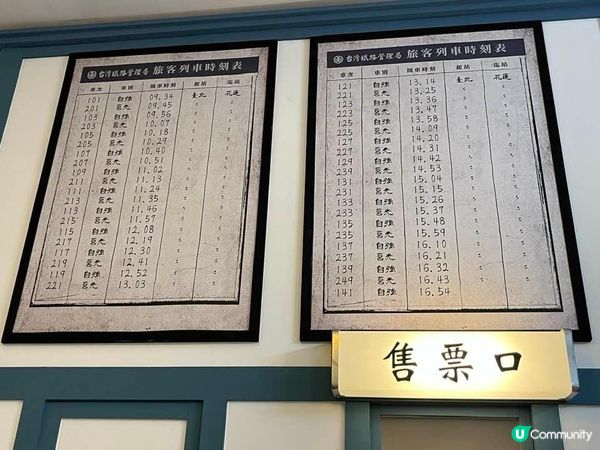 台灣鐵路管理局 旅客列車時刻表
車次 車別 開車時刻 起站 迄站
101 自強 09.34 臺北 花蓮
201 莒光 09.45 〃 〃
103 自強 09.56 〃 〃
203 莒光 10.07 〃 〃
105 自強 10.18 〃 〃
205 莒光 10.29 〃 〃
107 自強 10.40 〃 〃
207 莒光 10.51 〃 〃
109 自強 11.02 〃 〃
211 莒光 11.13 〃 〃
111 自強 11.24 〃 〃
213 莒光 11.35 〃 〃
113 自強 11.46 〃 〃
215 莒光 11.57 〃 〃
115 自強 12.08 〃 〃
217 莒光 12.19 〃 〃
117 自強 12.30 〃 〃
219 莒光 12.41 〃 〃
119 自強 12.52 〃 〃
221 莒光 13.03 〃 〃
台灣鐵路管理局 旅客列車時刻表
車次 車別 開車時刻 起站 迄站
121 自強 13.14 臺北 花蓮
221 莒光 13.25 〃 〃
123 自強 13.36 〃 〃
223 莒光 13.47 〃 〃
125 自強 13.58 〃 〃
225 莒光 14.09 〃 〃
127 自強 14.20 〃 〃
227 莒光 14.31 〃 〃
129 自強 14.42 〃 〃
239 莒光 14.53 〃 〃
131 自強 15.04 〃 〃
231 莒光 15.15 〃 〃
133 自強 15.26 〃 〃
233 莒光 15.37 〃 〃
135 自強 15.48 〃 〃
235 莒光 15.59 〃 〃
137 自強 16.10 〃 〃
237 莒光 16.21 〃 〃
139 自強 16.32 〃 〃
249 莒光 16.43 〃 〃
141 自強 16.54 〃 〃
售票口
U Community